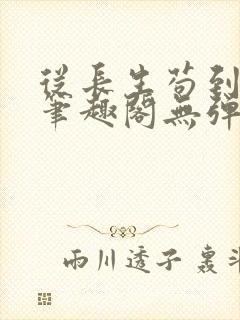 從長生苟到
筆趣閣無彈
雨川透子 轰斗